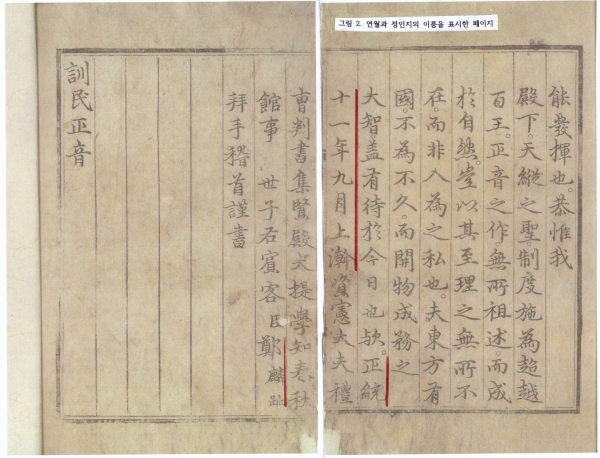 그림 2. 연월과 정인지의 이름을 표시한 페이지
能發揮也。恭惟我
殿下。天縱之聖。制度施為超越
百王。正音之作。無所祖述。而成
於自然。豈以其至理之無所不
在。而非人為之私也。夫東方有
國。不為不久。而開物成務之
大智。盖有待於今日也欤。正統
十一年九月上澣。資憲大夫禮
曹判書集賢殿大提學知春秋
館事 世子右賓客臣鄭麟趾
拜手稽首謹書
訓民正音